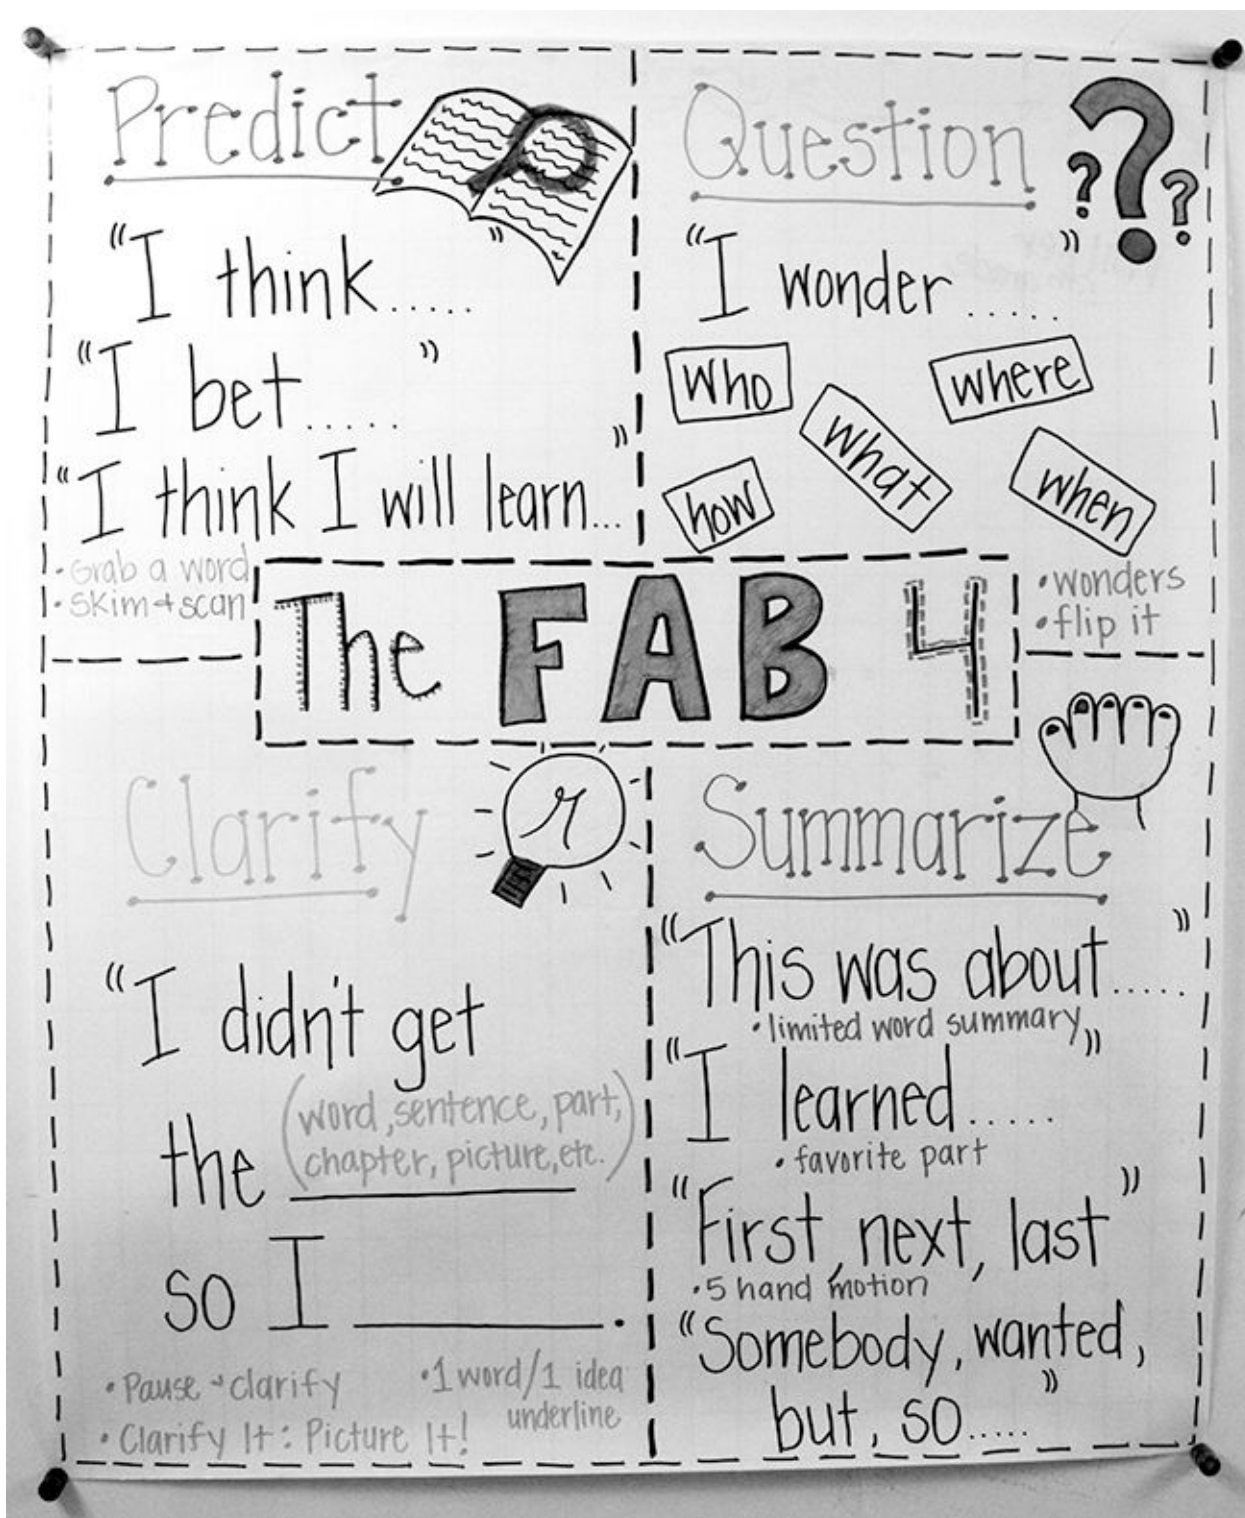 Predict
"I think....."
"I bet....."
"I think I will learn..."
• Grab a word
• Skim + scan
Question
"I wonder ....."
who
where
what
how
when
• wonders
• flip it
The FAB 4
Clarify
"I didn't get
(word, sentence, part,
chapter, picture, etc.)
the ______
so I ______.
• Pause + clarify
• 1 word/1 idea
underline
• Clarify It: Picture It!
Summarize
"This was about....."
• limited word summary
"I learned....."
• favorite part
"First, next, last"
• 5 hand motion
"Somebody, wanted,
but, so....."